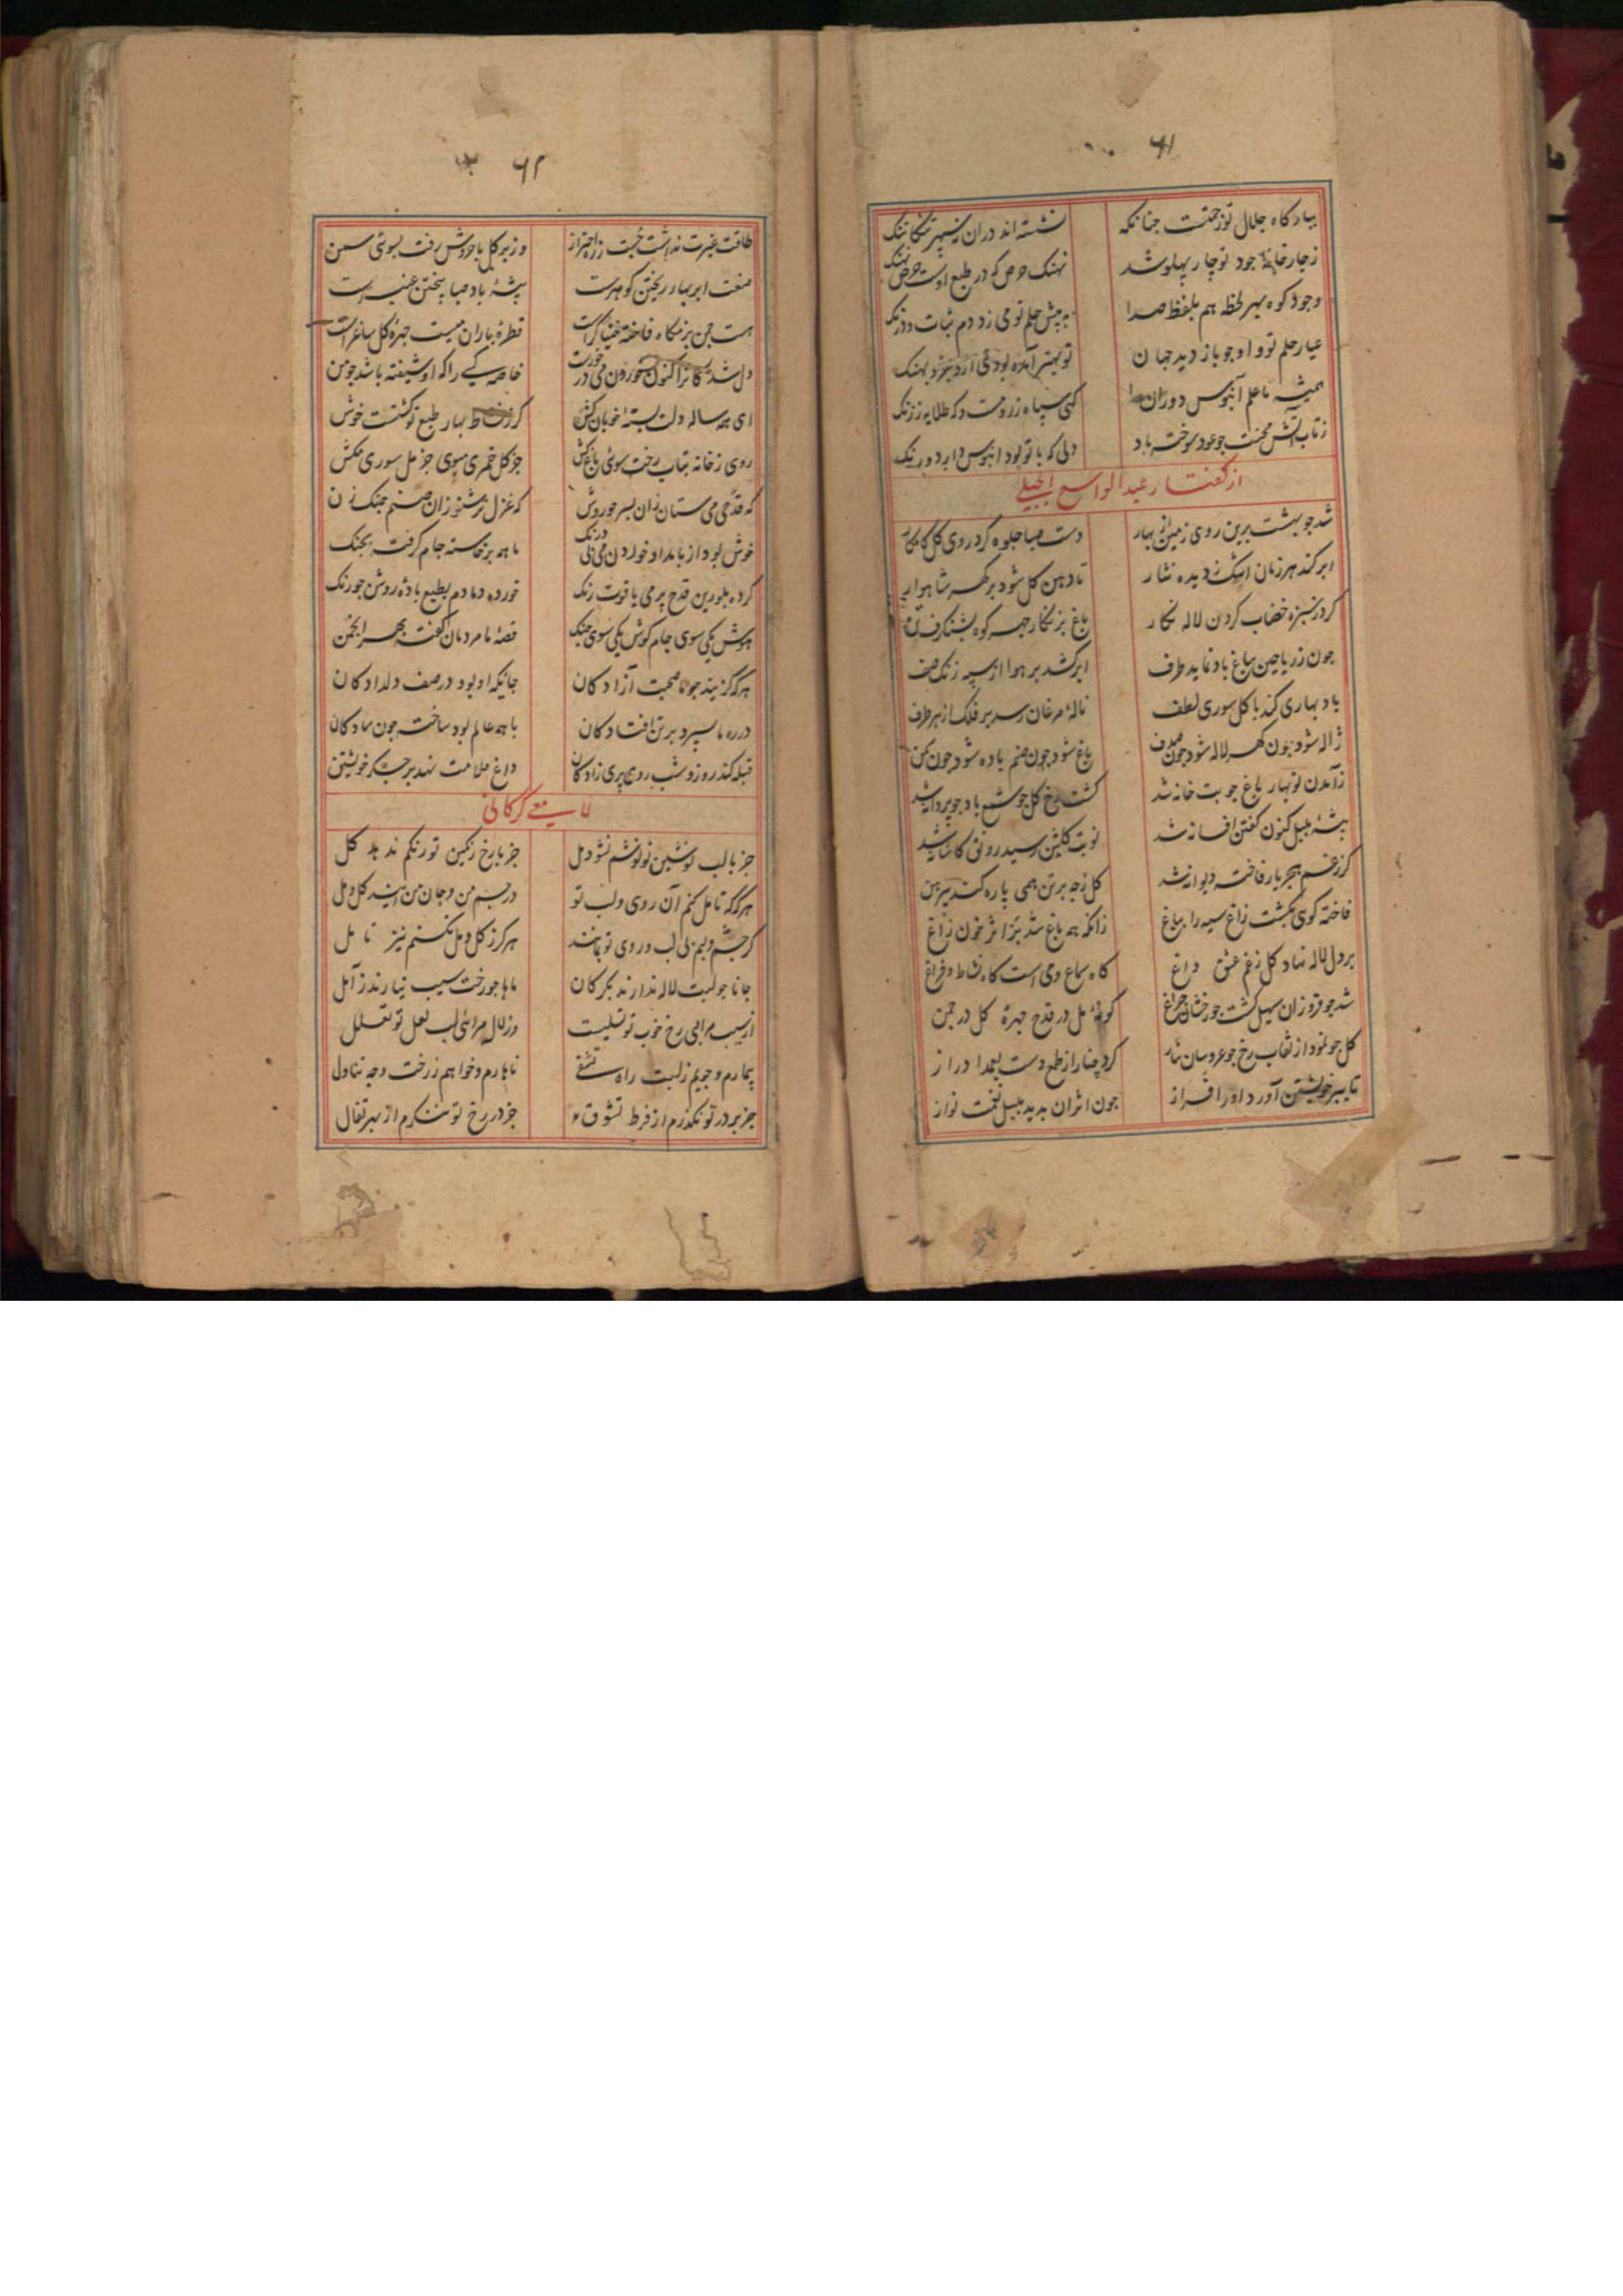 ۶۱
بیادکاه جلال تو زحمتست چنانکه نشسته اند دران نه سپهر تنکاتنک
زچارخانهٔ جود تو چار پهلو شد نهنک حرص که در طبع اوست حرص نهنک
وجود کوه بهر لحظه هم بلفظ صدا به پیش حلم تو می زد دم ثبات و درنک
عیار حلم تو و او چو باز دید جهان تو بهتر آمدهٔ
همیشه تا علم آبنوس دوران را کهی سیاه زروست و که طلایه ز زنک
ز تاب آتش محنت چو عود سوخته باد دلی که با تو بود آبنوس وار دو رنک
از کفتار عبد الواسع الجبلی
شد چو بهشت برین روی زمین از بهار دست صبا جلوه کرد روی کل کامکار
ابر کند هر زمان اشک ز دیده نثار تا دهن کل شود پر کهر شاهوار
کرد ز سبزه خضاب کردن لاله نکار باغ بزنکار چهر کوه بشنکرف تن
چون ز ریاحین بباغ باد نماید طرف ابر کشد بر هوا از سپه زنک صف
باد بهاری کند با کل سوری لطف نالهٔ مرغان رسد بر فلک از هر طرف
ژاله شود چون کهر لاله شود چون صدف باغ شود چون صنم باده شود چون شمن
زآمدن نوبهار باغ چو بت خانه شد کشت رخ کل چو شمع باد چو پروانه شد
پیشهٔ بلبل کنون کفتن افسانه شد نوبت کلشن رسید رونق کاشانه شد
کز غم هجر یار فاخته دیوانه شد کل ز چه بر تن همی پاره کند پیرهن
فاخته کوئی بکشت زاغ سیه را بباغ زانکه همه باغ شد پر اثر خون زاغ
بر دل لاله نهاد کل ز غم عشق داغ کاه سماع و می است کاه نشاط و فراغ
شد چو فروزان سهیل کشت چو رخشان چراغ کونهٔ مل در قدح چهرهٔ کل در چمن
کل چو نمود از نقاب رخ چو عروسان بناز کرد چنار از طمع دست بعمدا دراز
تا ببر خویشتن آورد او را فراز چون اثر آن بدید بلبل نغمت نواز
۶۲
طاقت غیرت نداشت جست ز راه احتراز وز بر کل با خروش رفت بسوی سمن
صنعت ابر بهار ریختن کوهرست پیشهٔ باد صبا بیختن عنبرست
هست چمن بزمکاه فاخته خنیاکرست قطرهٔ باران میست چهرهٔ کل ساغرست
دل شدکانرا کنون خوردن می درخورست خاصه کسی را که او شیفته باشد چو من
ای همه ساله دلت بسته خوبان کش کز نشاط بهار طبع تو کشتست خوش
روی ز خانه بتاب رخت سوی باغ کش جز کل خمری مبوی جز مل سوری مکش
که قدحی می ستان زان پسر حوروش که غزلی تر شنو زان صنم چنک زن
خوش بود از بامداد خوردن می بی درنک ما همه برخاسته جام کرفته بچنک
کرده بلورین قدح پر می یاقوت رنک خورده دمادم بطبع بادهٔ روشن چو زنک
هوش یکی سوی جام کوش یکی سوی چنک قصهٔ ما مردمان کفته بهر انجمن
هرکه کزیند چو ما صحبت آزادکان جایکه او بود در صف دلدادکان
در ره ما بسپرد بر تن افتادکان با همه عالم بود ساخته چون سادکان
قبله کند روز و شب روی پری زادکان داغ ملامت نهد بر جکر خویشتن
لامعی کرکانی
جز با لب نوشین تو نوشم نشود مل جز با رخ رنکین تو رنکم ندهد کل
هرکه که تامل کنم آن روی و لب تو در جسم من و جان من آید کل و مل
کر چشم و لبم بی لب و روی تو بمانند هرکز ز کل و مل نکنم نیز تامل
جانا چو لبت لاله ندارند بکرکان ماها چو رخت سیب نیارند ز آمل
از سیب مرا بی رخ خوب تو تسلیست وز لاله مرا بی لب لعل تو تعلل
بیمارم و جویم ز لبت راه تشفی ناهارم و خواهم ز رخت وجه تناول
جز بر در تو نکذرم از فرط تشوق جز در رخ تو ننکرم از بهر تفال